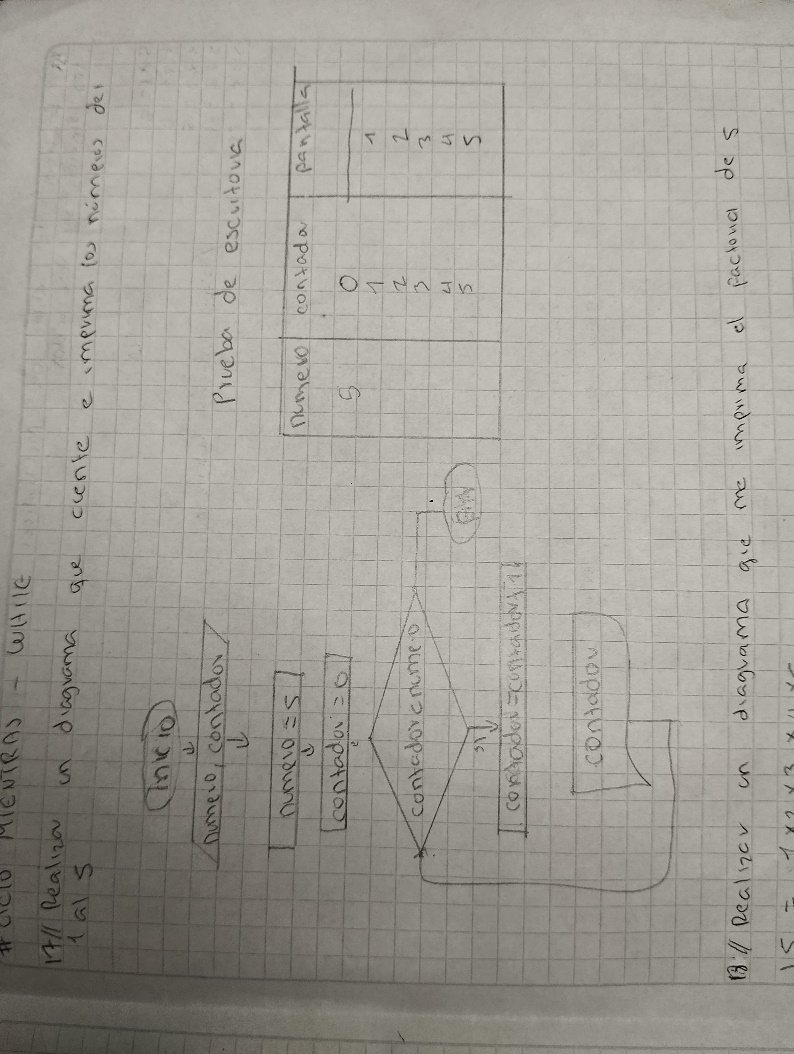 # CICLO MIENTRAS - WHILE
17// Realizar un diagrama que cuente e imprima los números del
1 al 5
Inicio
numero, contador
numero = 5
contador = 0
contador < numero
si
contador = contador + 1
contador
FIN
Prueba de escritoria
numero contada pantalla
5 0
1 1
2 2
3 3
4 4
5 5
18// Realizar un diagrama que me imprima el factorial de 5
15 = 1 x 2 x 3 x 4 x 5